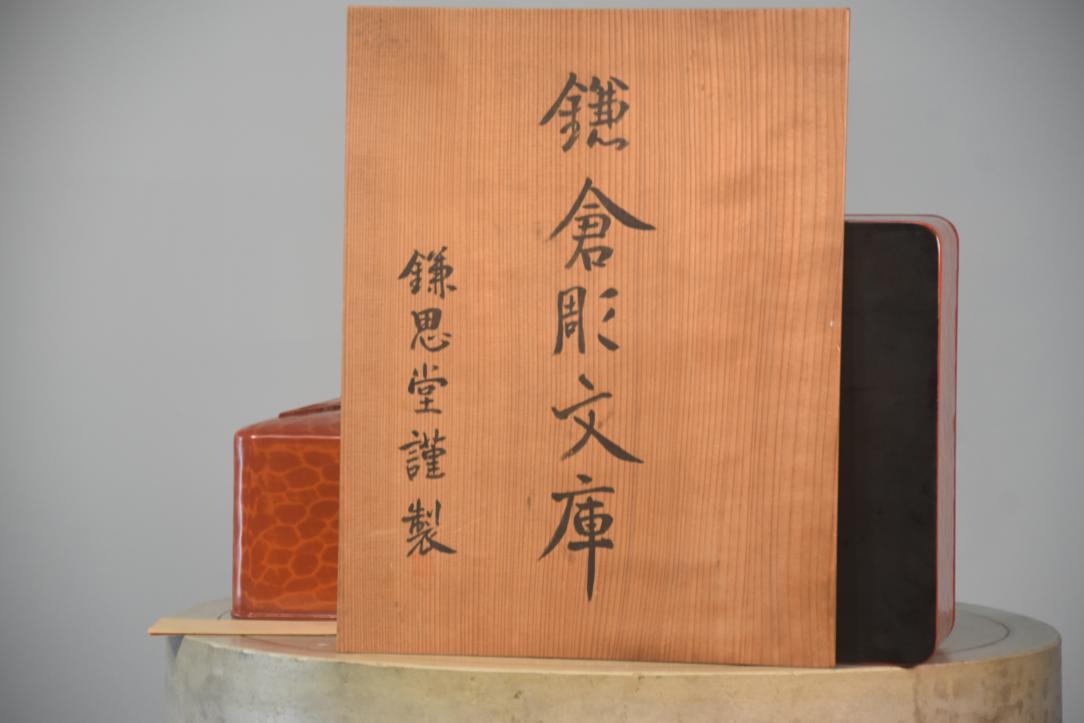 鎌倉彫文庫
鎌思堂謹製